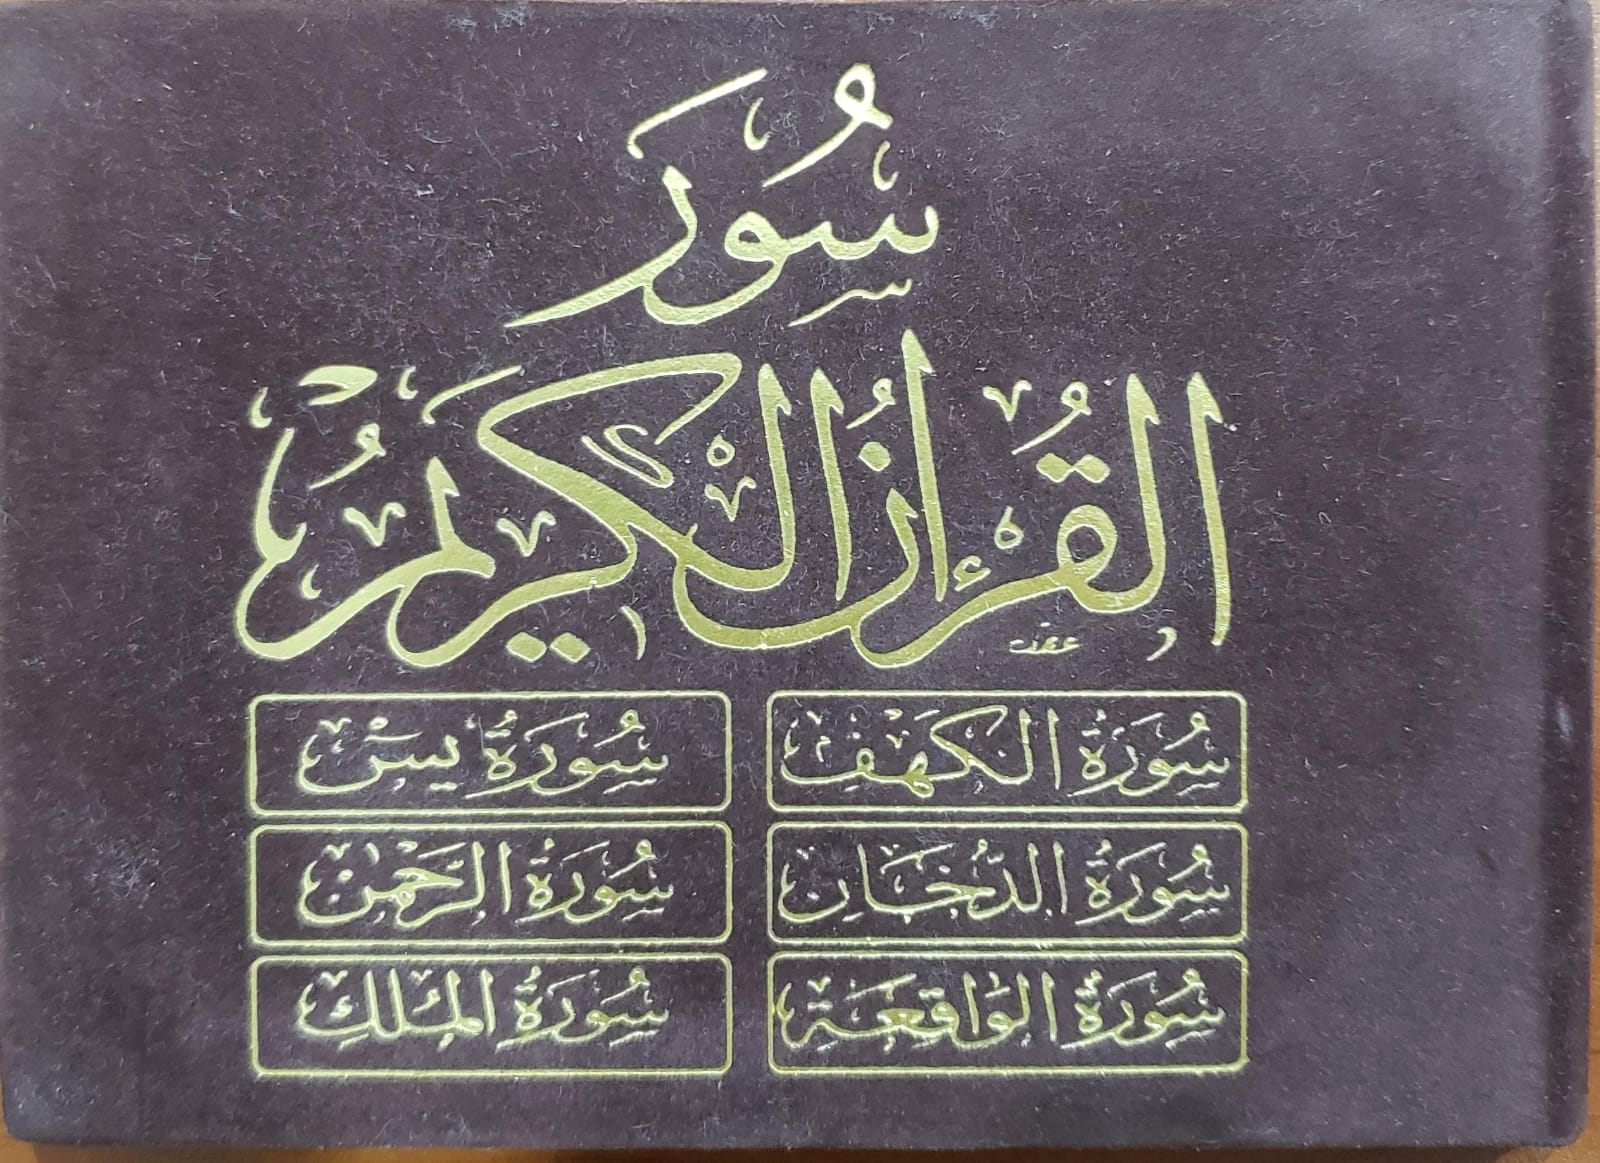 سُوَر
القُرْءَانُ الْكَرِيمُ
سُورَةُ الْكَهْفِ
سُورَةُ يسٓ
سُورَةُ الدُّخَانِ
سُورَةُ الرَّحْمٰنِ
سُورَةُ الْوَاقِعَةِ
سُورَةُ الْمُلْكِ